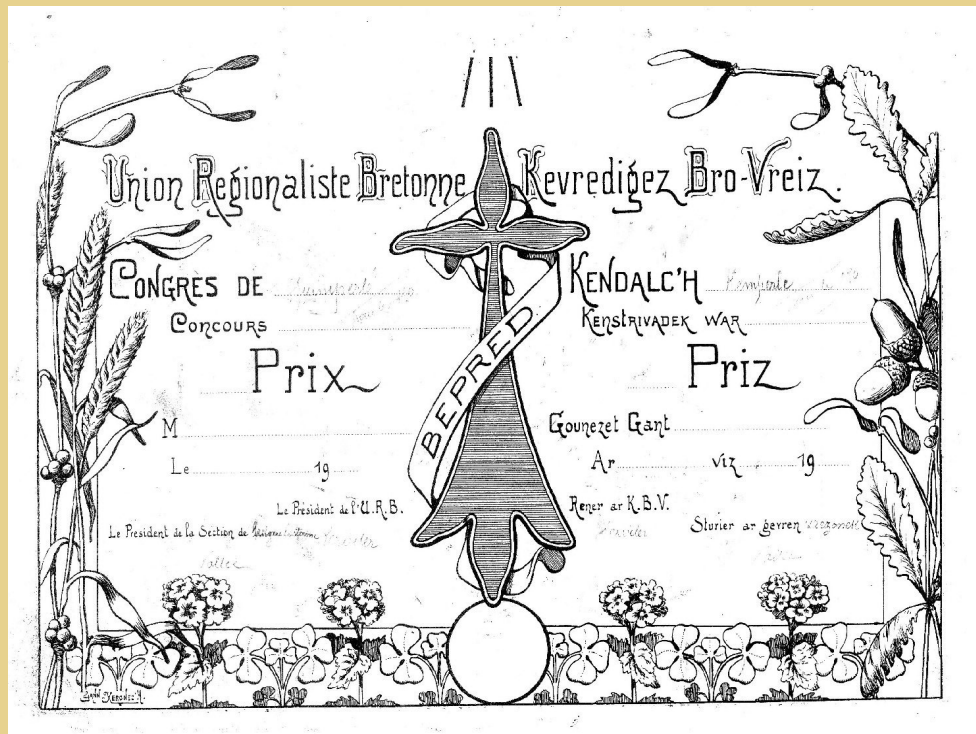 Union Régionaliste Bretonne
Kevredigez Bro-Vreiz.
CONGRÈS DE
CONCOURS
Prix
M
Le 19
Le Président de l'U.R.B.
Le Président de la Section de
BEPRED
KENDALC'H Kemperle
KENSTRIVADEK WAR
Priz
Gounezet Gant
Ar viz 19
Rener ar K.B.V.
Sturier ar gevren